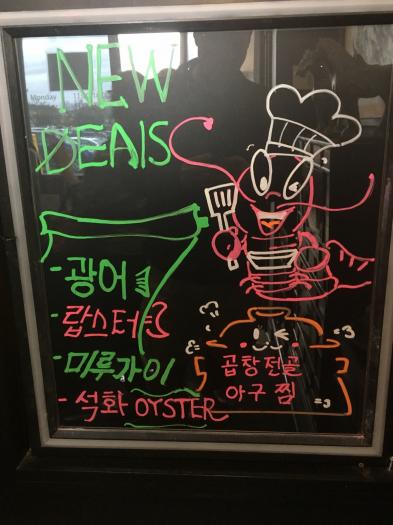 NEW
DEALS
- 광어
- 랍스터
- 미루가이
- 석화 OYSTER
곱창전골
아구찜
Monday